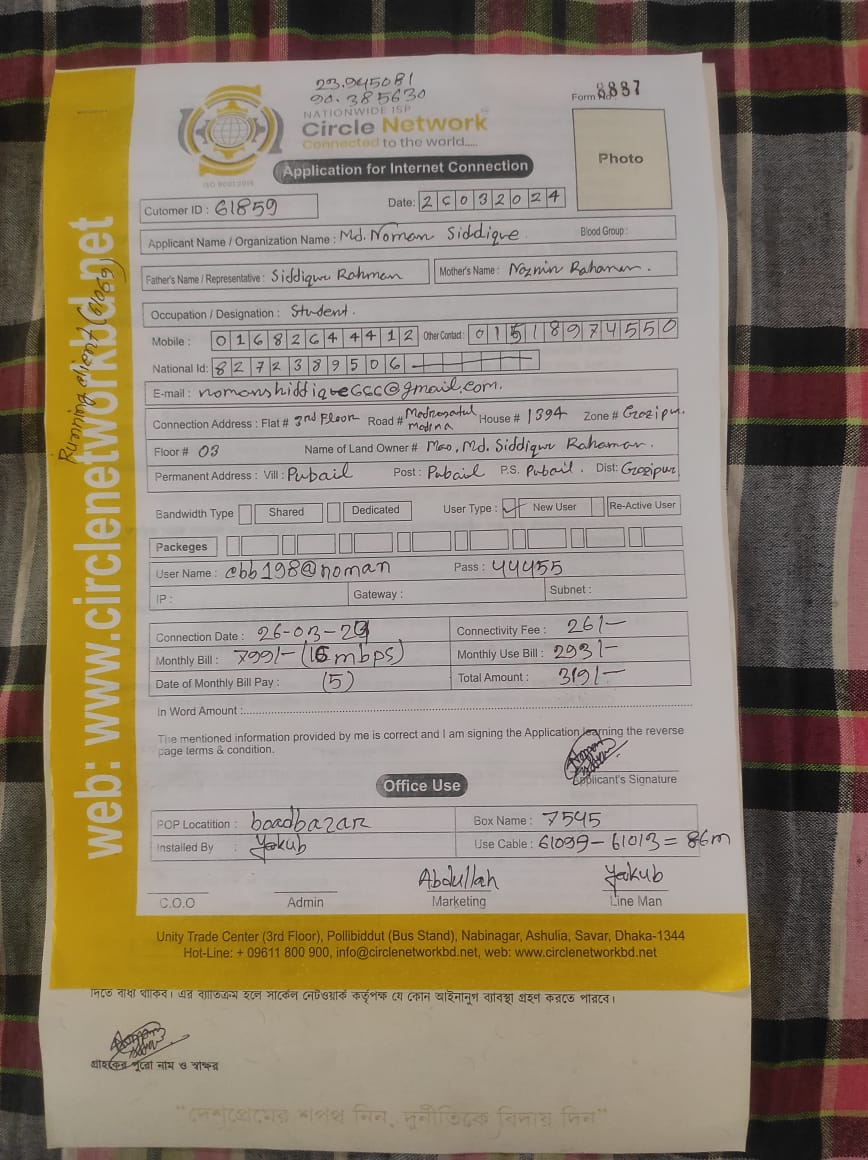 23.945081
90.385630
NATIONWIDE ISP
Circle Network
Connected to the world.....
ISO 9001:2015
Form No. 8887
Photo
Application for Internet Connection
Cutomer ID : 61859 Date: 26032024
Applicant Name / Organization Name : Md. Noman Siddique Blood Group :
Father's Name / Representative : Siddique Rahman Mother's Name : Naznin Rahaman.
Occupation / Designation : Student.
Mobile : 01682644412 Other Contact : 01518974550
National Id: 8272389506
E-mail : nomanshiddique666@gmail.com.
Connection Address : Flat # 3rd Floor Road # Madrasatul Madina House # 1394 Zone # Gazipur.
Floor # 03 Name of Land Owner # Md. Siddique Rahaman.
Permanent Address : Vill : Pubail Post : Pubail P.S. Pubail. Dist: Gazipur
Bandwidth Type Shared Dedicated User Type : New User Re-Active User
Packeges
User Name : cbb198@noman Pass : 44455
IP : Gateway : Subnet :
Connection Date : 26-03-24 Connectivity Fee : 26/-
Monthly Bill : 799/- (16 mbps) Monthly Use Bill : 293/-
Date of Monthly Bill Pay : (5) Total Amount : 319/-
In Word Amount :
The mentioned information provided by me is correct and I am signing the Application learning the reverse
page terms & condition.
Applicant's Signature
Office Use
POP Locatition : boadbazar Box Name : 7545
Installed By : Yakub Use Cable : 61099 - 61013 = 86m
Abdullah Yakub
C.O.O Admin Marketing Line Man
Unity Trade Center (3rd Floor), Pollibiddut (Bus Stand), Nabinagar, Ashulia, Savar, Dhaka-1344
Hot-Line: + 09611 800 900, info@circlenetworkbd.net, web: www.circlenetworkbd.net
web: www.circlenetworkbd.net
Running client
দিতে বাধ্য থাকিব। এর ব্যতিক্রম হলে সার্কেল নেটওয়ার্ক কর্তৃপক্ষ যে কোন আইনানুগ ব্যবস্থা গ্রহণ করতে পারবে।
গ্রাহকের পুরো নাম ও স্বাক্ষর
"দেশপ্রেমের শপথ নিন, দুর্নীতিকে বিদায় দিন"